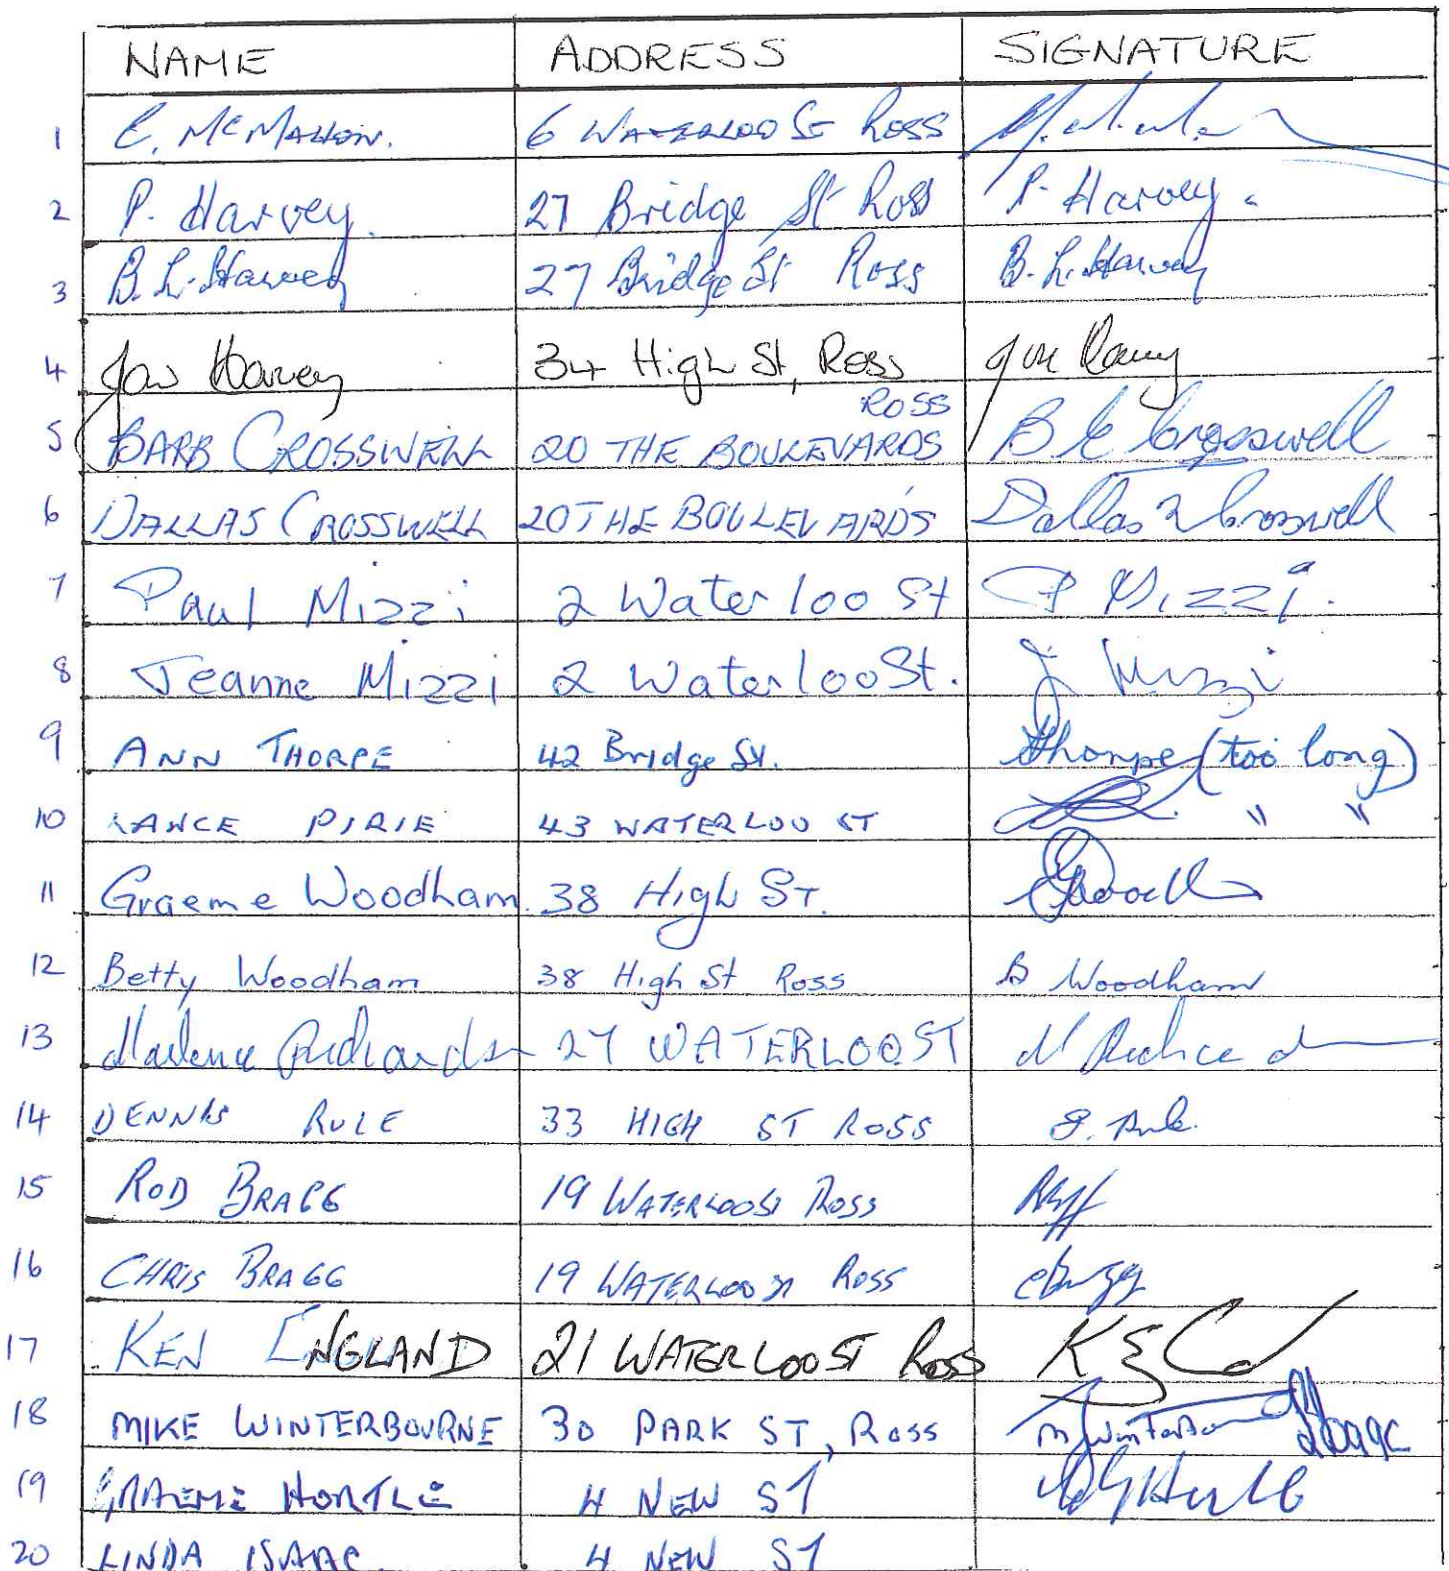 NAME ADDRESS SIGNATURE
1 C. McMAHON. 6 WATERLOO St ROSS
2 P. Harvey. 27 Bridge St Ross P. Harvey.
3 B. L. Harvey 27 Bridge St Ross B. L. Harvey
4 Jan Harvey 34 High St, Ross
ROSS
5 BARB CROSSWELL 20 THE BOULEVARDS B E Crosswell
6 DALLAS CROSSWELL 20 THE BOULEVARDS Dallas Crosswell
7 Paul Mizzi 2 Waterloo St P Mizzi.
8 Jeanne Mizzi 2 Waterloo St. J Mizzi
9 ANN THORPE 42 Bridge St. Thorpe (too long)
10 LANCE PIRIE 43 WATERLOO ST " "
11 Graeme Woodham. 38 High ST.
12 Betty Woodham 38 High St Ross B Woodham
13 Marlene Richards 27 WATERLOO ST
14 DENNIS RULE 33 HIGH ST ROSS D. Rule.
15 ROD BRAGG 19 WATERLOO St ROSS
16 CHRIS BRAGG 19 WATERLOO St ROSS CBragg
17 KEN ENGLAND 21 WATERLOO ST ROSS
18 MIKE WINTERBOURNE 30 PARK ST, ROSS
19 GRAEME HORTLE 4 NEW ST
20 LINDA ISAAC. 4 NEW ST